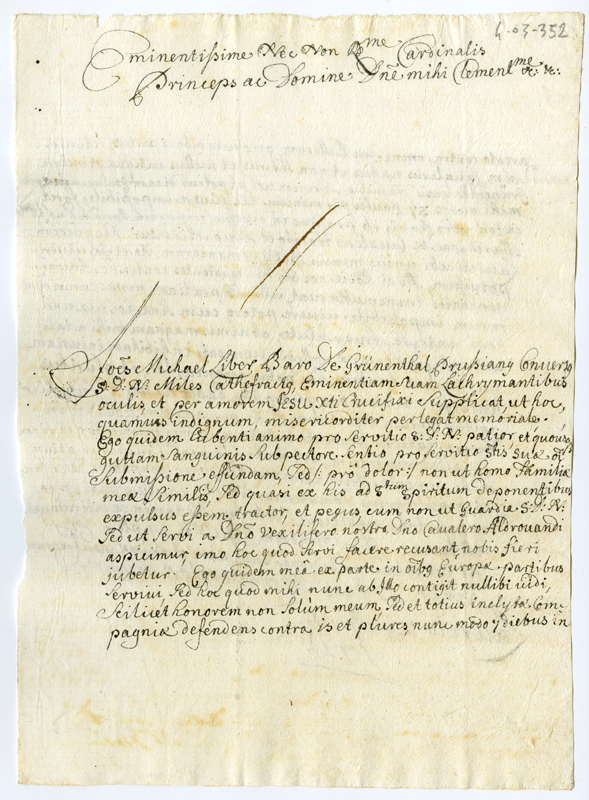 4-03-352
Eminentissime Nec Non Rme Cardinalis
Princeps ac Domine Dne mihi Clementme &: &:
Joes Michael Liber Baro De Grünenthal Prussiang Convers9
S: D: N: Miles Cathafractg, Eminentiam Suam Lachrymantibus
oculis, et per amorem JESU Xti Crucifixi Supplicat ut hoc,
quamuis indignum, misericorditer perlegat memoriale.
Ego quidem Lubenti animo pro servitio S: D: N: patior et
guttam Sanguinis Sub pectore Sentio pro servitio Stis Suæ
Submissione effundam, Sed /: prô dolor :/ non ut homo Familiæ
meæ Similis, Sed quasi ex his ad Stum Spiritum deponentibus
expulsus essem, tractor, et pegus cum non ut Guardiæ S: D: N:
Sed ut servi a Dno vexilifero nostro Dno Cavalero Aldrouandi
aspicimur, imo hoc quod Servi facere recusant nobis fieri
jubetur. Ego quidem meâ ex parte in oibg Europæ partibus
servivi, Sed hoc quod mihi nunc ab Illo contigit nullibi uidi,
Scilicet honorem non Solùm meum Sed et totius inclytæ Com-
pagniæ defendens contra is et plures, nunc modo 7 diebus in